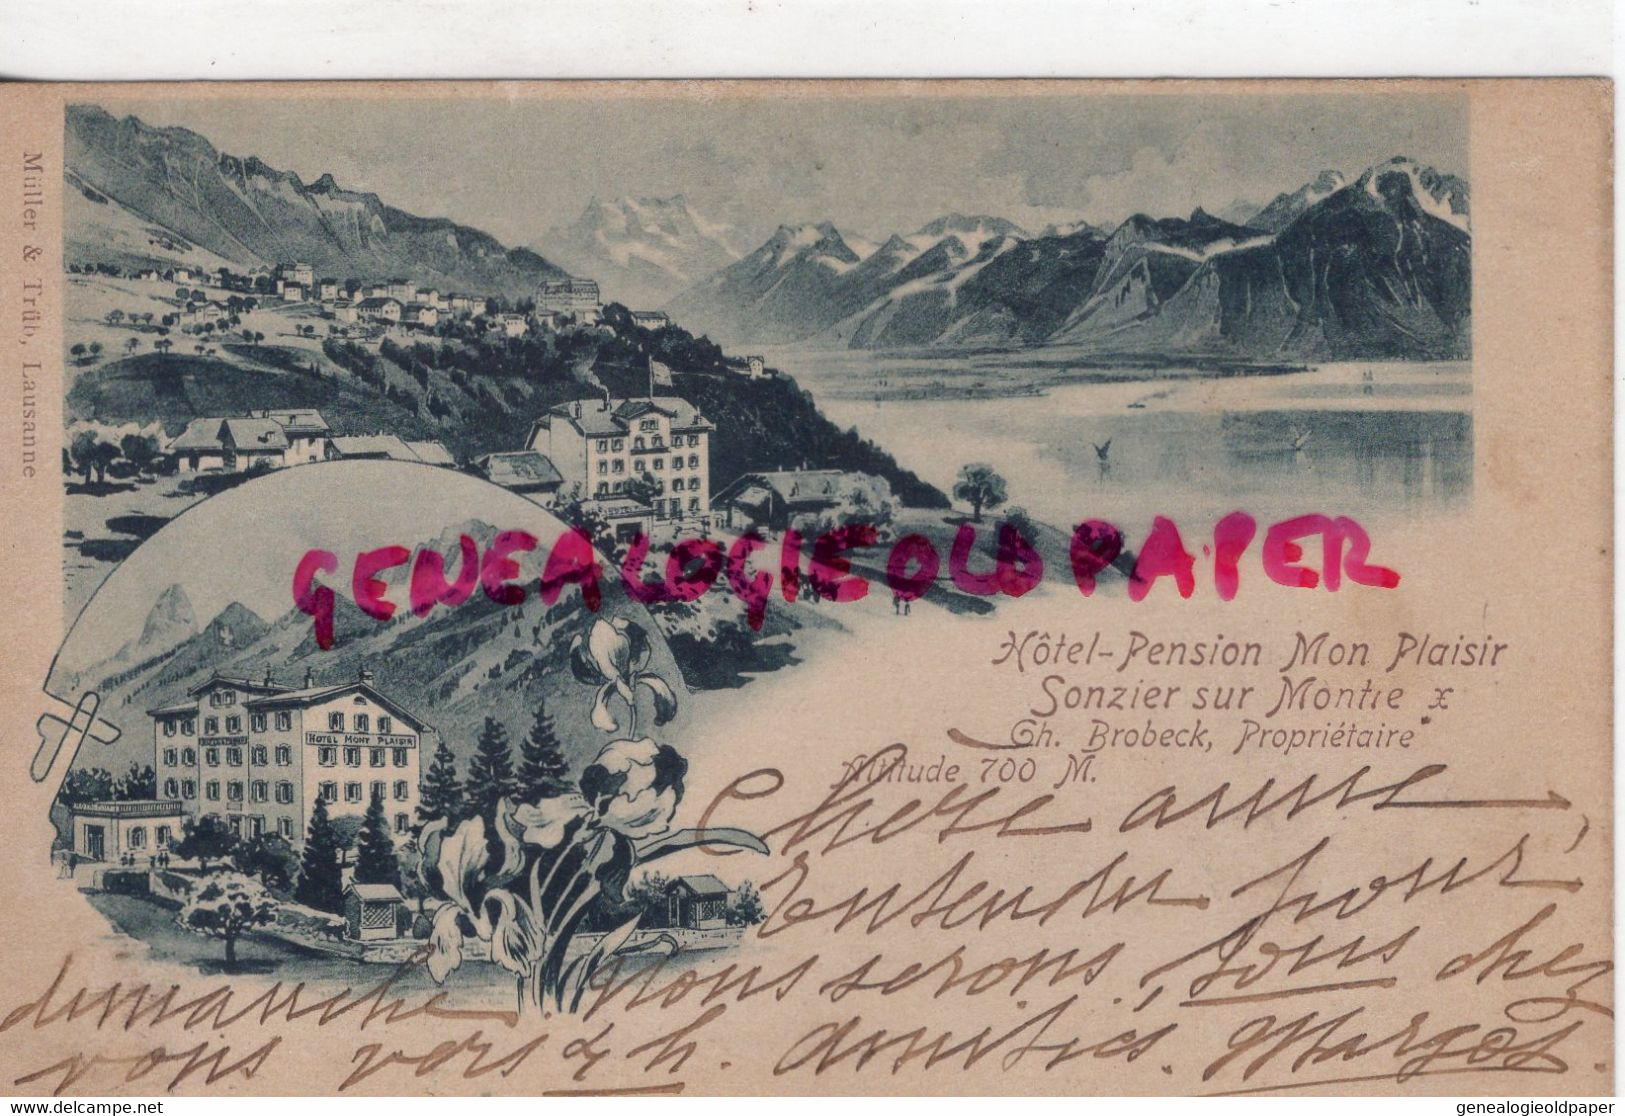 Müller & Trüb, Lausanne
GENEALOGIEOLDPAPER
HOTEL MONT PLAISIR
Hôtel-Pension Mon Plaisir
Sonzier sur Montre x
Ch. Brobeck, Propriétaire
Altitude 700 M.
Chère amie,
Entendu pour
dimanche nous serons, tous chez
vous vers 4 h. Amitiés. Margot.
genealogieoldpaper